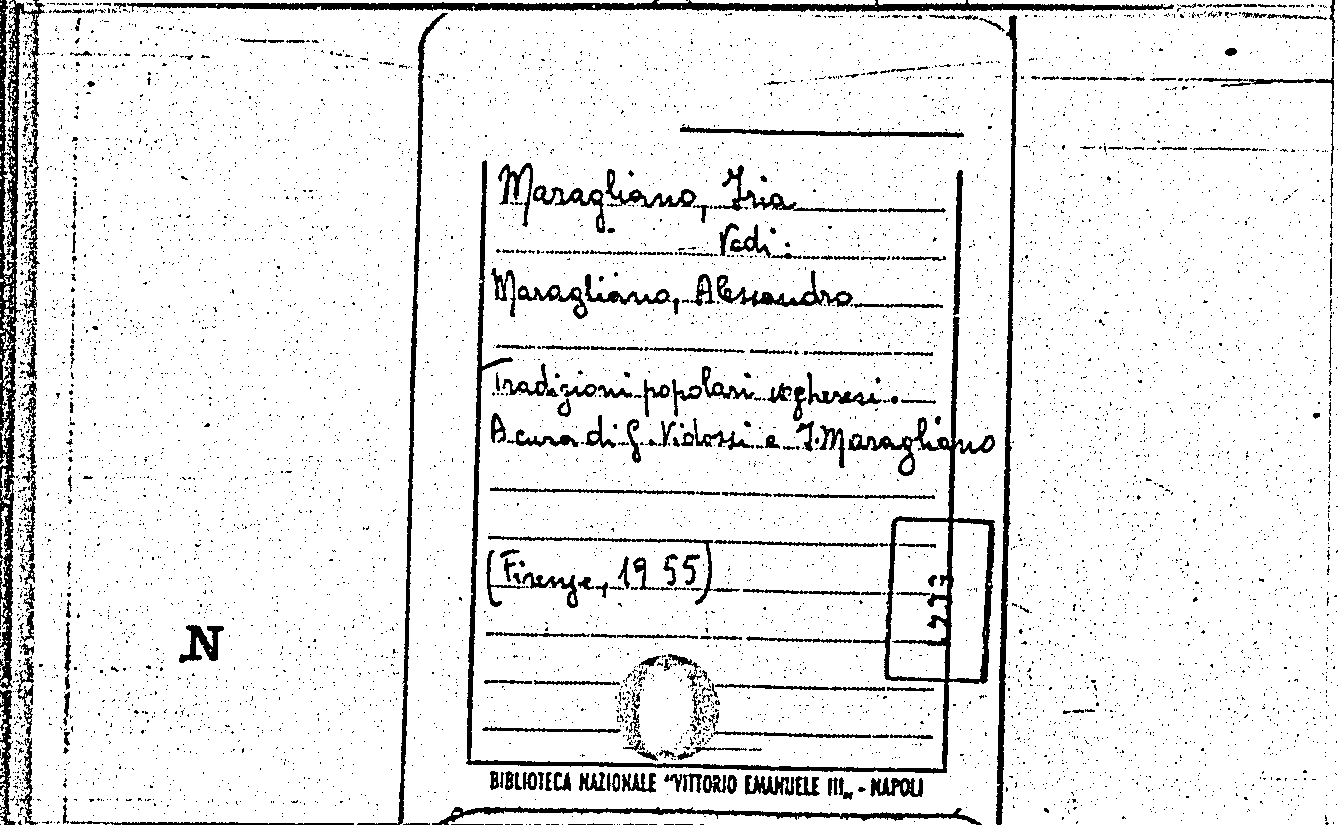 Maragliano, Iria
Vedi:
Maragliano, Alessandro
Tradizioni popolari vogheresi.
A cura di G. Vidossi e I. Maragliano
(Firenze, 1955)
N
BIBLIOTECA NAZIONALE "VITTORIO EMANUELE III„ - NAPOLI